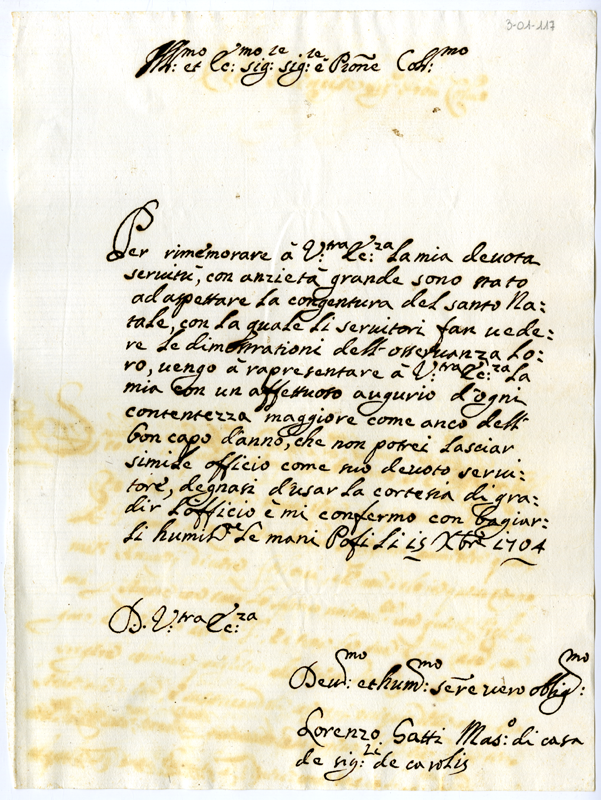 3-01-117
Ill:mo et Ec:mo sig:re sig:re è Prõne Col:mo
Per rimemorare à V:tra Ec:za la mia devota
servitù, con anzietà grande sono stato
ad aspettare la congentura del santo Na:
tale, con la quale li servitori fan vede:
re le dimostrationi dell'osservanza lo:
ro, vengo à rapresentare à V:tra Ec:za la
mia con un affettuoso augurio d'ogni
contentezza maggiore come anco dell'
bon capo d'anno, che non potrei lasciar
simile officio come suo devoto servi:
tore, degnasi d'usar la cortesia di gra:
dir l'officio è mi confermo con bagiar:
li humil:te le mani Posi li 15 Xbre 1704
D. V:tra Ec:za
Dev:mo et hum:mo serre vero oblig:mo
Lorenzo Gatti Mas:o di casa
de sig:re de carolis